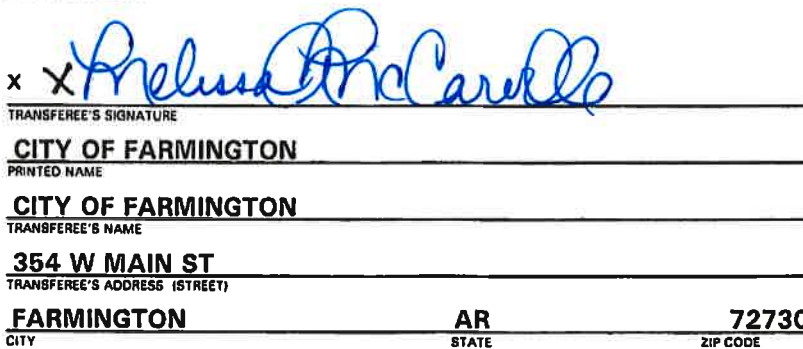 x X Melissa McCarville
TRANSFEREE'S SIGNATURE
CITY OF FARMINGTON
PRINTED NAME
CITY OF FARMINGTON
TRANSFEREE'S NAME
354 W MAIN ST
TRANSFEREE'S ADDRESS (STREET)
FARMINGTON AR 72730
CITY STATE ZIP CODE